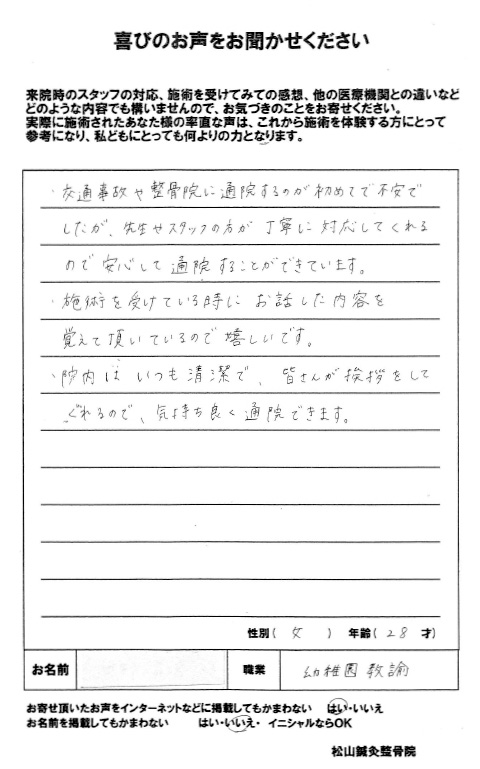 喜びのお声をお聞かせください
来院時のスタッフの対応、施術を受けてみての感想、他の医療機関との違いなど
どのような内容でも構いませんので、お気づきのことをお寄せください。
実際に施術されたあなた様の率直な声は、これから施術を体験する方にとって
参考になり、私どもにとっても何よりの力となります。
・交通事故や整骨院に通院するのが初めてで不安で
したが、先生やスタッフの方が丁寧に対応してくれる
ので安心して通院することができています。
・施術を受けている時にお話した内容を
覚えて頂いているので嬉しいです。
・院内はいつも清潔で、皆さんが挨拶をして
くれるので、気持ち良く通院できます。
性別(女)年齢(28才)
お名前 職業 幼稚園教諭
お寄せ頂いたお声をインターネットなどに掲載してもかまわない はい・いいえ
お名前を掲載してもかまわない はい・いいえ・イニシャルならOK
松山鍼灸整骨院